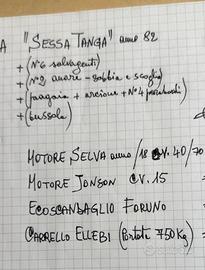 A "SESSA TANGA" anno 82
+ (N°6 salvagenti)
+ (N°2 ancore - sabbia e scoglio)
+ (pagaia + arcione + N°4 parabordi)
+ (bussola)
MOTORE SELVA anno /18 CV. 40/70
MOTORE JONSON CV. 15
ECOSCANDAGLIO FORUNO
CARRELLO ELLEBI (Portata 750Kg)